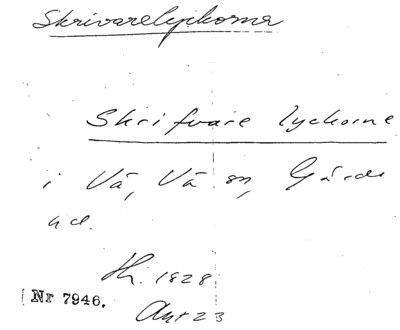 Skrivarelyckorna
Skrifvare lyckorne
i Vä, Vä sn, Gärds
hd.
Hi. 1828
Nr 7946.
Akt 23